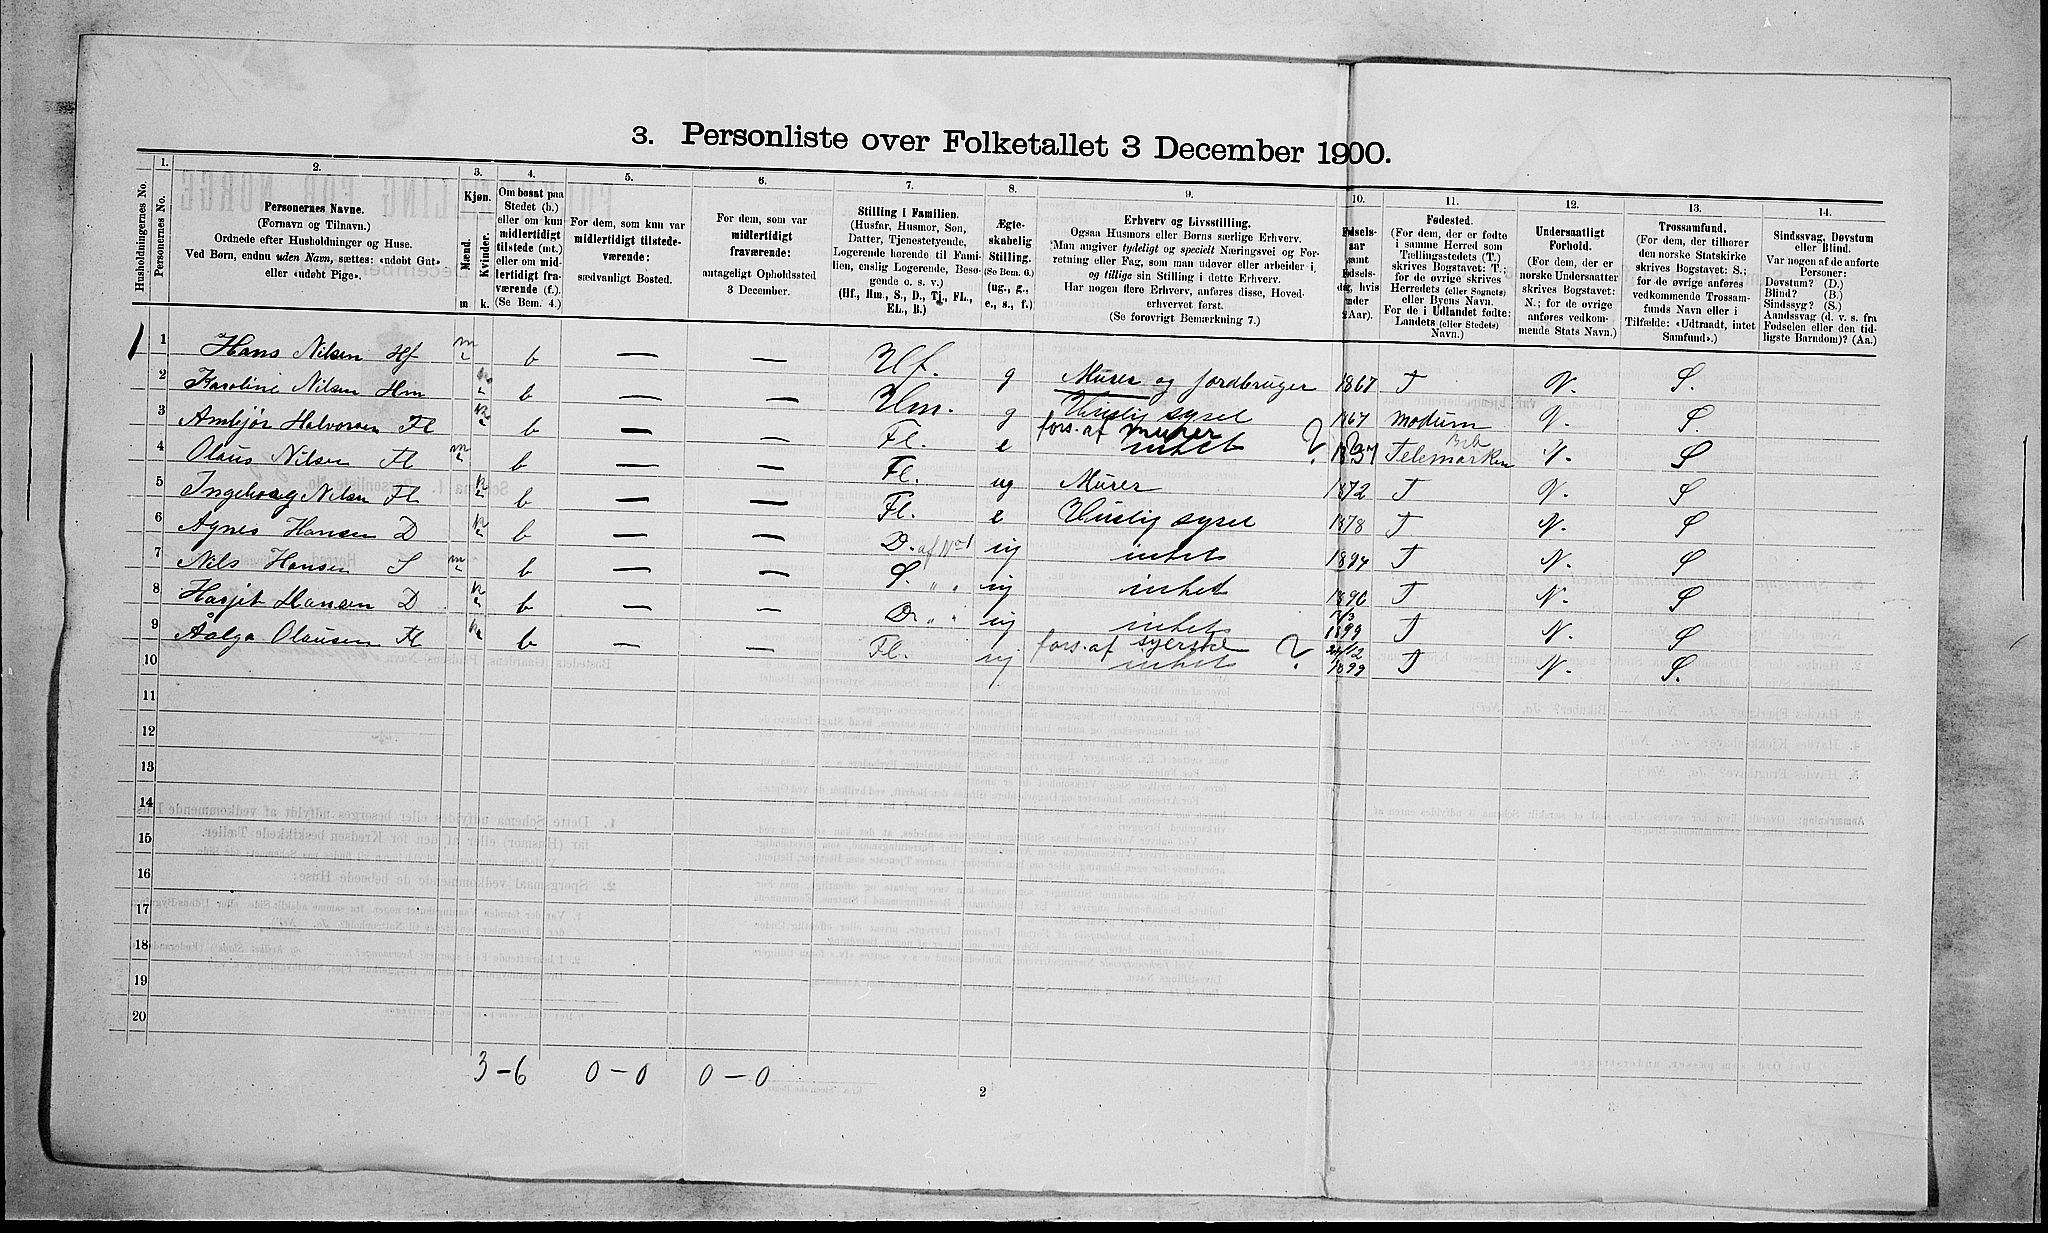 3. Personliste over Folketallet 3 December 1900.
Husholdningernes No.
1. Personernes No.
2. Personernes Navne.
(Fornavn og Tilnavn.)
Ordnede efter Husholdninger og Huse.
Ved Børn, endnu uden Navn, sættes: «udøbt Gut»
eller «udøbt Pige».
3. Kjøn.
Mænd. m.
Kvinder. k.
4. Om bosat paa
Stedet (b.)
eller om kun
midlertidigt
tilstede (mt.)
eller om mid-
lertidigt fra-
værende (f.).
(Se Bem. 4.)
5. For dem, som kun var
midlertidigt tilstede-
værende:
sædvanligt Bosted.
6. For dem, som var
midlertidigt
fraværende:
antageligt Opholdssted
3 December.
7. Stilling i Familien.
(Husfar, Husmor, Søn,
Datter, Tjenestetyende,
Logerende hørende til Fami-
lien, enslig Logerende, Besø-
gende o. s. v.)
(Hf., Hm., S., D., Tj., FL.,
EL., B.)
8. Ægte-
skabelig
Stilling.
(Se Bem. 6.)
(ug., g.,
e., s., f.)
9. Erhverv og Livsstilling.
Ogsaa Husmors eller Børns særlige Erhverv.
Man angiver tydeligt og specielt Næringsvei og For-
retning eller Fag, som man udøver eller arbeider i,
og tillige sin Stilling i dette Erhverv.
Har nogen flere Erhverv, anføres disse, Hoved-
erhvervet først.
(Se forøvrigt Bemærkning 7.)
10. Fødsels-
aar
samt
Fødsels-
dag, hvis
under
2 Aar).
11. Fødested.
(For dem, der er fødte
i samme Herred som
Tællingsstedets (T.)
skrives Bogstavet: T.;
for de øvrige skrives
Herredets (eller Sognets)
eller Byens Navn.
For de i Udlandet fødte:
Landets (eller Stedets)
Navn.)
12. Undersaatligt
Forhold.
(For dem, der er
norske Undersaatter
skrives Bogstavet:
N.; for de øvrige
anføres vedkom-
mende Stats Navn.)
13. Trossamfund.
(For dem, der tilhører
den norske Statskirke
skrives Bogstavet: S.;
for de øvrige anføres
vedkommende Trossam-
funds Navn eller i
Tilfælde: «Udtraadt, intet
Samfund».)
14. Sindssvag, Døvstum
eller Blind.
Var nogen af de anførte
Personer:
Døvstum? (D.)
Blind? (B.)
Sindssyg? (S.)
Aandssvag (d. v. s. fra
Fødselen eller den tid-
ligste Barndom)? (Aa.)
1 1 Hans Nilsen Hf m b — — Hf. g Murer og Jordbruger 1867 T N. S.
2 Karoline Nilsen Hm k b — — Hm. g Huslig sysel 1867 Modum N. S.
3 Halvorsen Fl k b — — Fl. e fors. af murer intet ? Telemarken N. S
4 Olaus Nilsen Fl m b — — Fl. ug Murer 1872 T N. S
5 Ingeborg Nilsen Fl k b — — Fl. e Huslig sysel 1878 T N. S
6 Agnes Hansen D k b — — D. af No 1 ug intet 1894 T N. S
7 Nils Hansen S m b — — S. " " ug intet 1896 T N. S
8 Hansen D k b — — D. " " ug intet 1899 T N. S
9 Aalga Olausen Fl k b — — Fl. ug fors. af syerske intet ? 24/12 1899 T N. S.
10
11
12
13
14
15
16
17
18
19
20
3 – 6 0 – 0 0 – 0
2